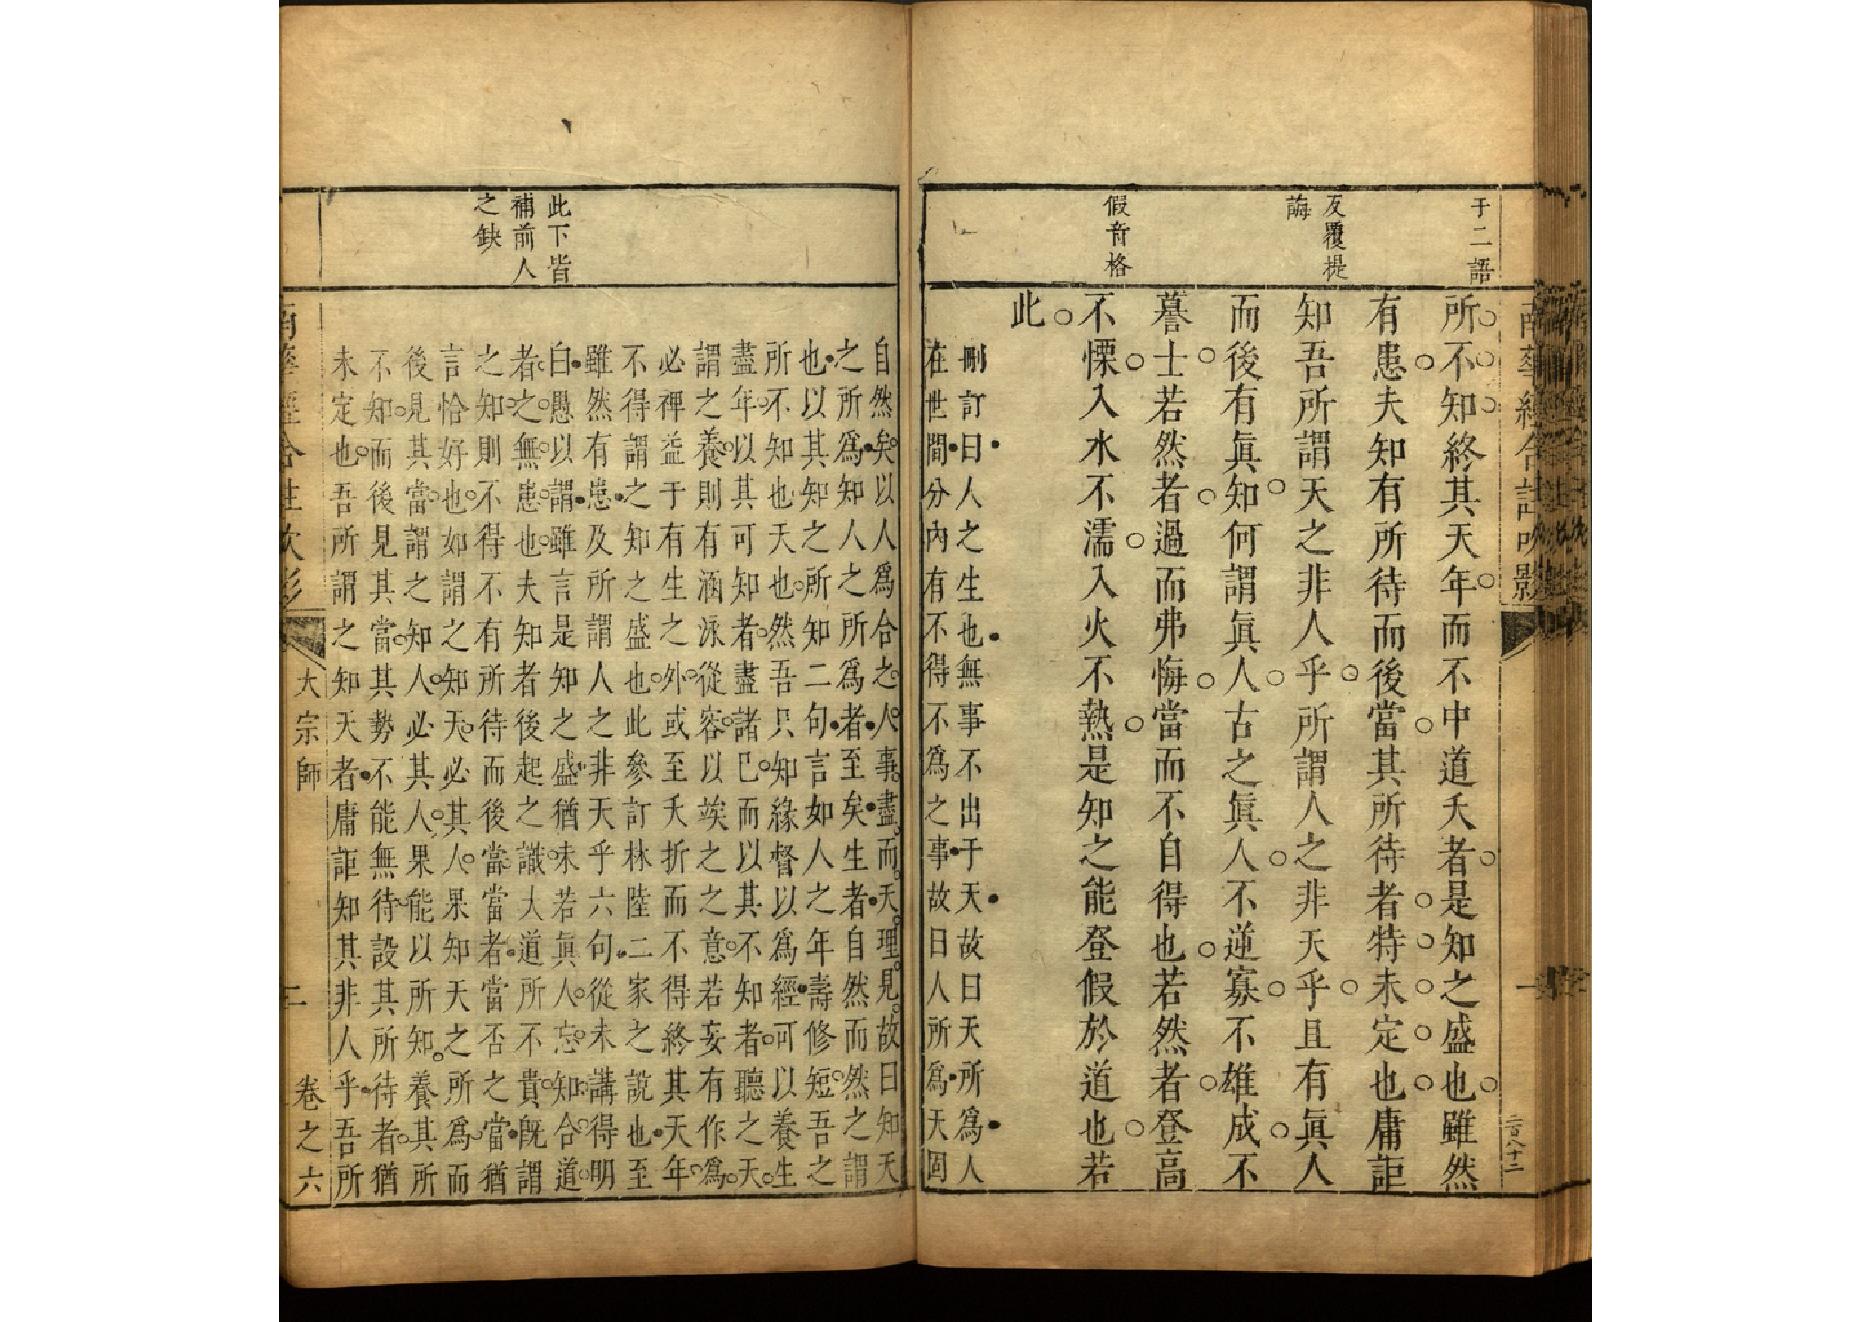 于二語
反覆提
誨
假音格
南華經合註吹影
所不知終其天年而不中道夭者是知之盛也雖然
有患夫知有所待而後當其所待者特未定也庸詎
知吾所謂天之非人乎所謂人之非天乎且有眞人
而後有眞知何謂眞人古之眞人不逆寡不雄成不
謩士若然者過而弗悔當而不自得也若然者登高
不慄入水不濡入火不熱是知之能登假於道也若
此
刪訂曰人之生也無事不出于天故曰天所爲人
在世間分內有不得不爲之事故曰人所爲天固
此下皆
補前人
之缺
自然矣以人爲合之人事盡而天理見故曰知天
之所爲知人之所爲者至矣生者自然而然之謂
也以其知之所知二句言如人之年壽修短吾之
所不知也天也然吾只知緣督以爲經可以養生
盡年以其可知者盡諸已而以其不知者聽之天
謂之養則有涵泳從容以竢之之意若妄有作爲
必裨益于有生之外或至夭折而不得終其天年
不得謂之知之盛也此參訂林陸二家之說也至
雖然有患及所謂人之非天乎六句從未講得明
白愚以謂雖言是知之盛猶未若眞人忘知合道
者之無患也夫知者後起之識大道所不貴既謂
之知則不得不有所待而後當當者當否之當猶
言恰好也如謂之知天必其人果知天之所爲而
後見其當謂之知人必其人果能以所知養其所
不知而後見其當其勢不能無待設其所待者猶
未定也吾所謂之知天者庸詎知其非人乎吾所
大宗師
二
卷之六